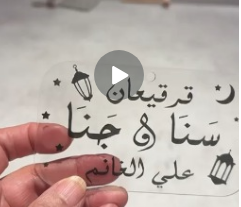 قرقيعان
سَنَا و جَنَا
علي الغانم